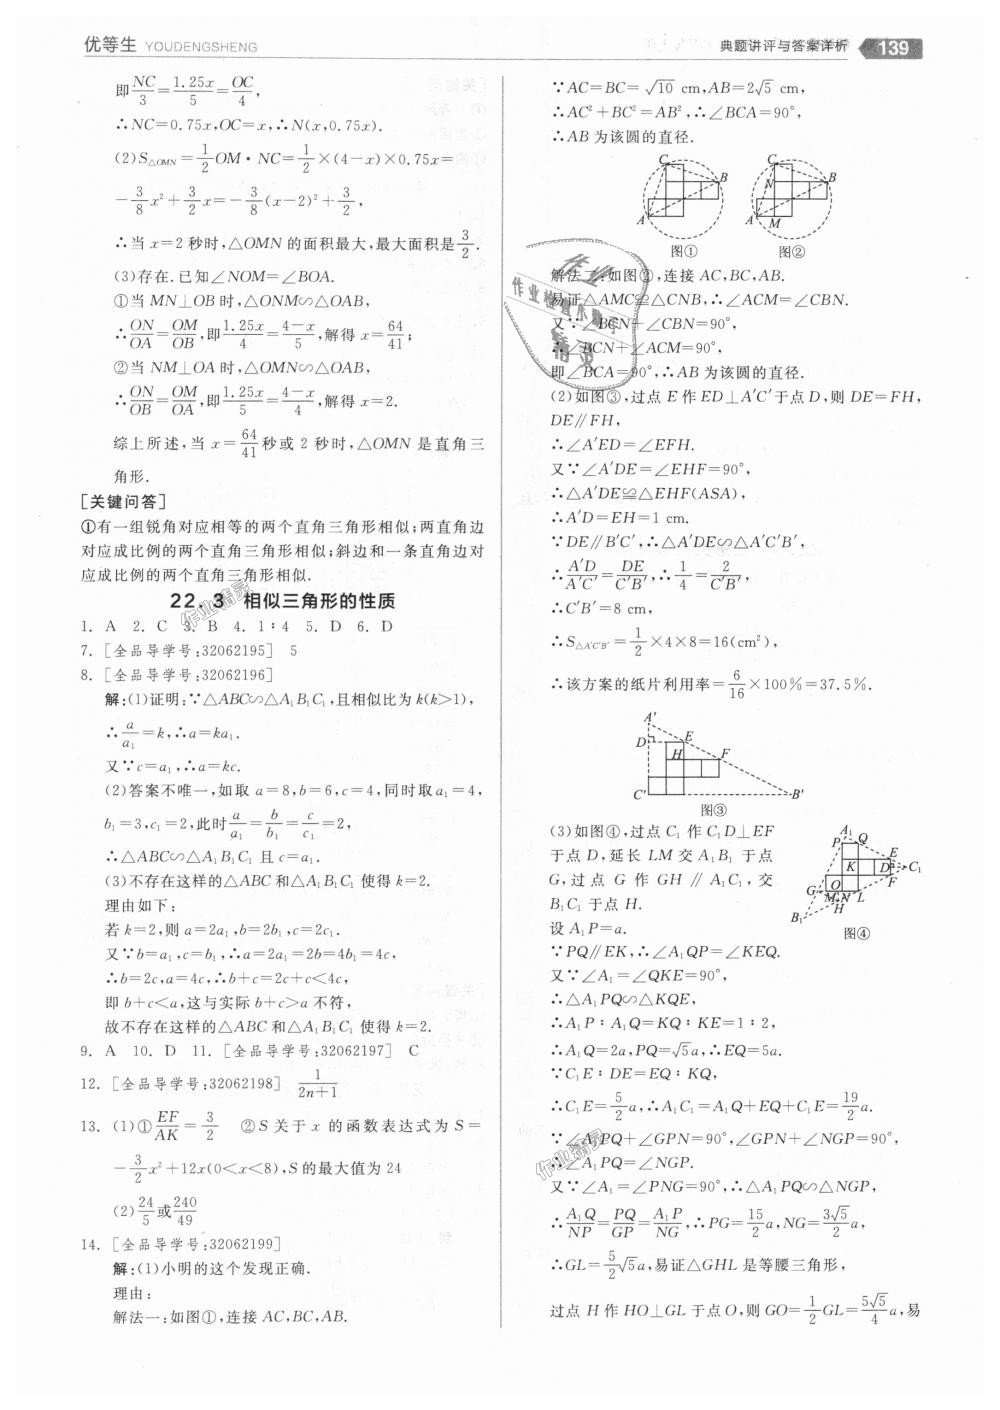 优等生 YOUDENGSHENG
典题讲评与答案详析 139
即NC/3=1.25x/5=OC/4,
∴NC=0.75x,OC=x,∴N(x,0.75x).
(2)S△OMN=1/2OM·NC=1/2×(4-x)×0.75x=
-3/8x²+3/2x=-3/8(x-2)²+3/2,
∴当x=2秒时,△OMN的面积最大,最大面积是3/2.
(3)存在.已知∠NOM=∠BOA.
①当MN⊥OB时,△ONM∽△OAB,
∴ON/OA=OM/OB,即1.25x/4=4-x/5,解得x=64/41;
②当NM⊥OA时,△OMN∽△OAB,
∴ON/OB=OM/OA,即1.25x/5=4-x/4,解得x=2.
综上所述,当x=64/41秒或2秒时,△OMN是直角三
角形.
[关键问答]
①有一组锐角对应相等的两个直角三角形相似;两直角边
对应成比例的两个直角三角形相似;斜边和一条直角边对
应成比例的两个直角三角形相似.
22.3 相似三角形的性质
1. A 2. C 3. B 4. 1∶4 5. D 6. D
7. [全品导学号:32062195] 5
8. [全品导学号:32062196]
解:(1)证明:∵△ABC∽△A₁B₁C₁,且相似比为k(k>1),
∴a/a₁=k,∴a=ka₁.
又∵c=a₁,∴a=kc.
(2)答案不唯一,如取a=8,b=6,c=4,同时取a₁=4,
b₁=3,c₁=2,此时a/a₁=b/b₁=c/c₁=2,
∴△ABC∽△A₁B₁C₁且c=a₁.
(3)不存在这样的△ABC和△A₁B₁C₁使得k=2.
理由如下:
若k=2,则a=2a₁,b=2b₁,c=2c₁.
又∵b=a₁,c=b₁,∴a=2a₁=2b=4b₁=4c,
∴b=2c,a=4c,∴b+c=2c+c<4c,
即b+c<a,这与实际b+c>a不符,
故不存在这样的△ABC和△A₁B₁C₁使得k=2.
9. A 10. D 11. [全品导学号:32062197] C
12. [全品导学号:32062198] 1/2n+1
13. (1)①EF/AK=3/2 ②S关于x的函数表达式为S=
-3/2x²+12x(0<x<8),S的最大值为24
(2)24/5或240/49
14. [全品导学号:32062199]
解:(1)小明的这个发现正确.
理由:
解法一:如图①,连接AC,BC,AB.
∵AC=BC=√10 cm,AB=2√5 cm,
∴AC²+BC²=AB²,∴∠BCA=90°,
∴AB为该圆的直径.
C B A
图①
C N B A M
图②
解法二:如图②,连接AC,BC,AB.
易证△AMC≌△CNB,∴∠ACM=∠CBN.
又∵∠BCN+∠CBN=90°,
∴∠BCN+∠ACM=90°,
即∠BCA=90°,∴AB为该圆的直径.
(2)如图③,过点E作ED⊥A′C′于点D,则DE=FH,
DE∥FH,
∴∠A′ED=∠EFH.
又∵∠A′DE=∠EHF=90°,
∴△A′DE≌△EHF(ASA),
∴A′D=EH=1 cm.
∵DE∥B′C′,∴△A′DE∽△A′C′B′,
∴A′D/A′C′=DE/C′B′,∴1/4=2/C′B′,
∴C′B′=8 cm,
∴S△A′C′B′=1/2×4×8=16(cm²),
∴该方案的纸片利用率=6/16×100%=37.5%.
A′ D E H F C′ B′
图③
(3)如图④,过点C₁作C₁D⊥EF
于点D,延长LM交A₁B₁于点
G,过点G作GH∥A₁C₁,交
B₁C₁于点H.
A₁ P Q E K D C₁ F G O M N L H B₁
图④
设A₁P=a.
∵PQ∥EK,∴∠A₁QP=∠KEQ.
又∵∠A₁=∠QKE=90°,
∴△A₁PQ∽△KQE,
∴A₁P∶A₁Q=KQ∶KE=1∶2,
∴A₁Q=2a,PQ=√5a,∴EQ=5a.
∵C₁E∶DE=EQ∶KQ,
∴C₁E=5/2a,∴A₁C₁=A₁Q+EQ+C₁E=19/2a.
∵∠A₁PQ+∠GPN=90°,∠GPN+∠NGP=90°,
∴∠A₁PQ=∠NGP.
又∵∠A₁=∠PNG=90°,∴△A₁PQ∽△NGP,
∴A₁Q/NP=PQ/GP=A₁P/NG,∴PG=15/2a,NG=3√5/2a,
∴GL=5/2√5a,易证△GHL是等腰三角形,
过点H作HO⊥GL于点O,则GO=1/2GL=5√5/4a,易
作业
作业检查小助手
精灵
作业精灵
作业精灵